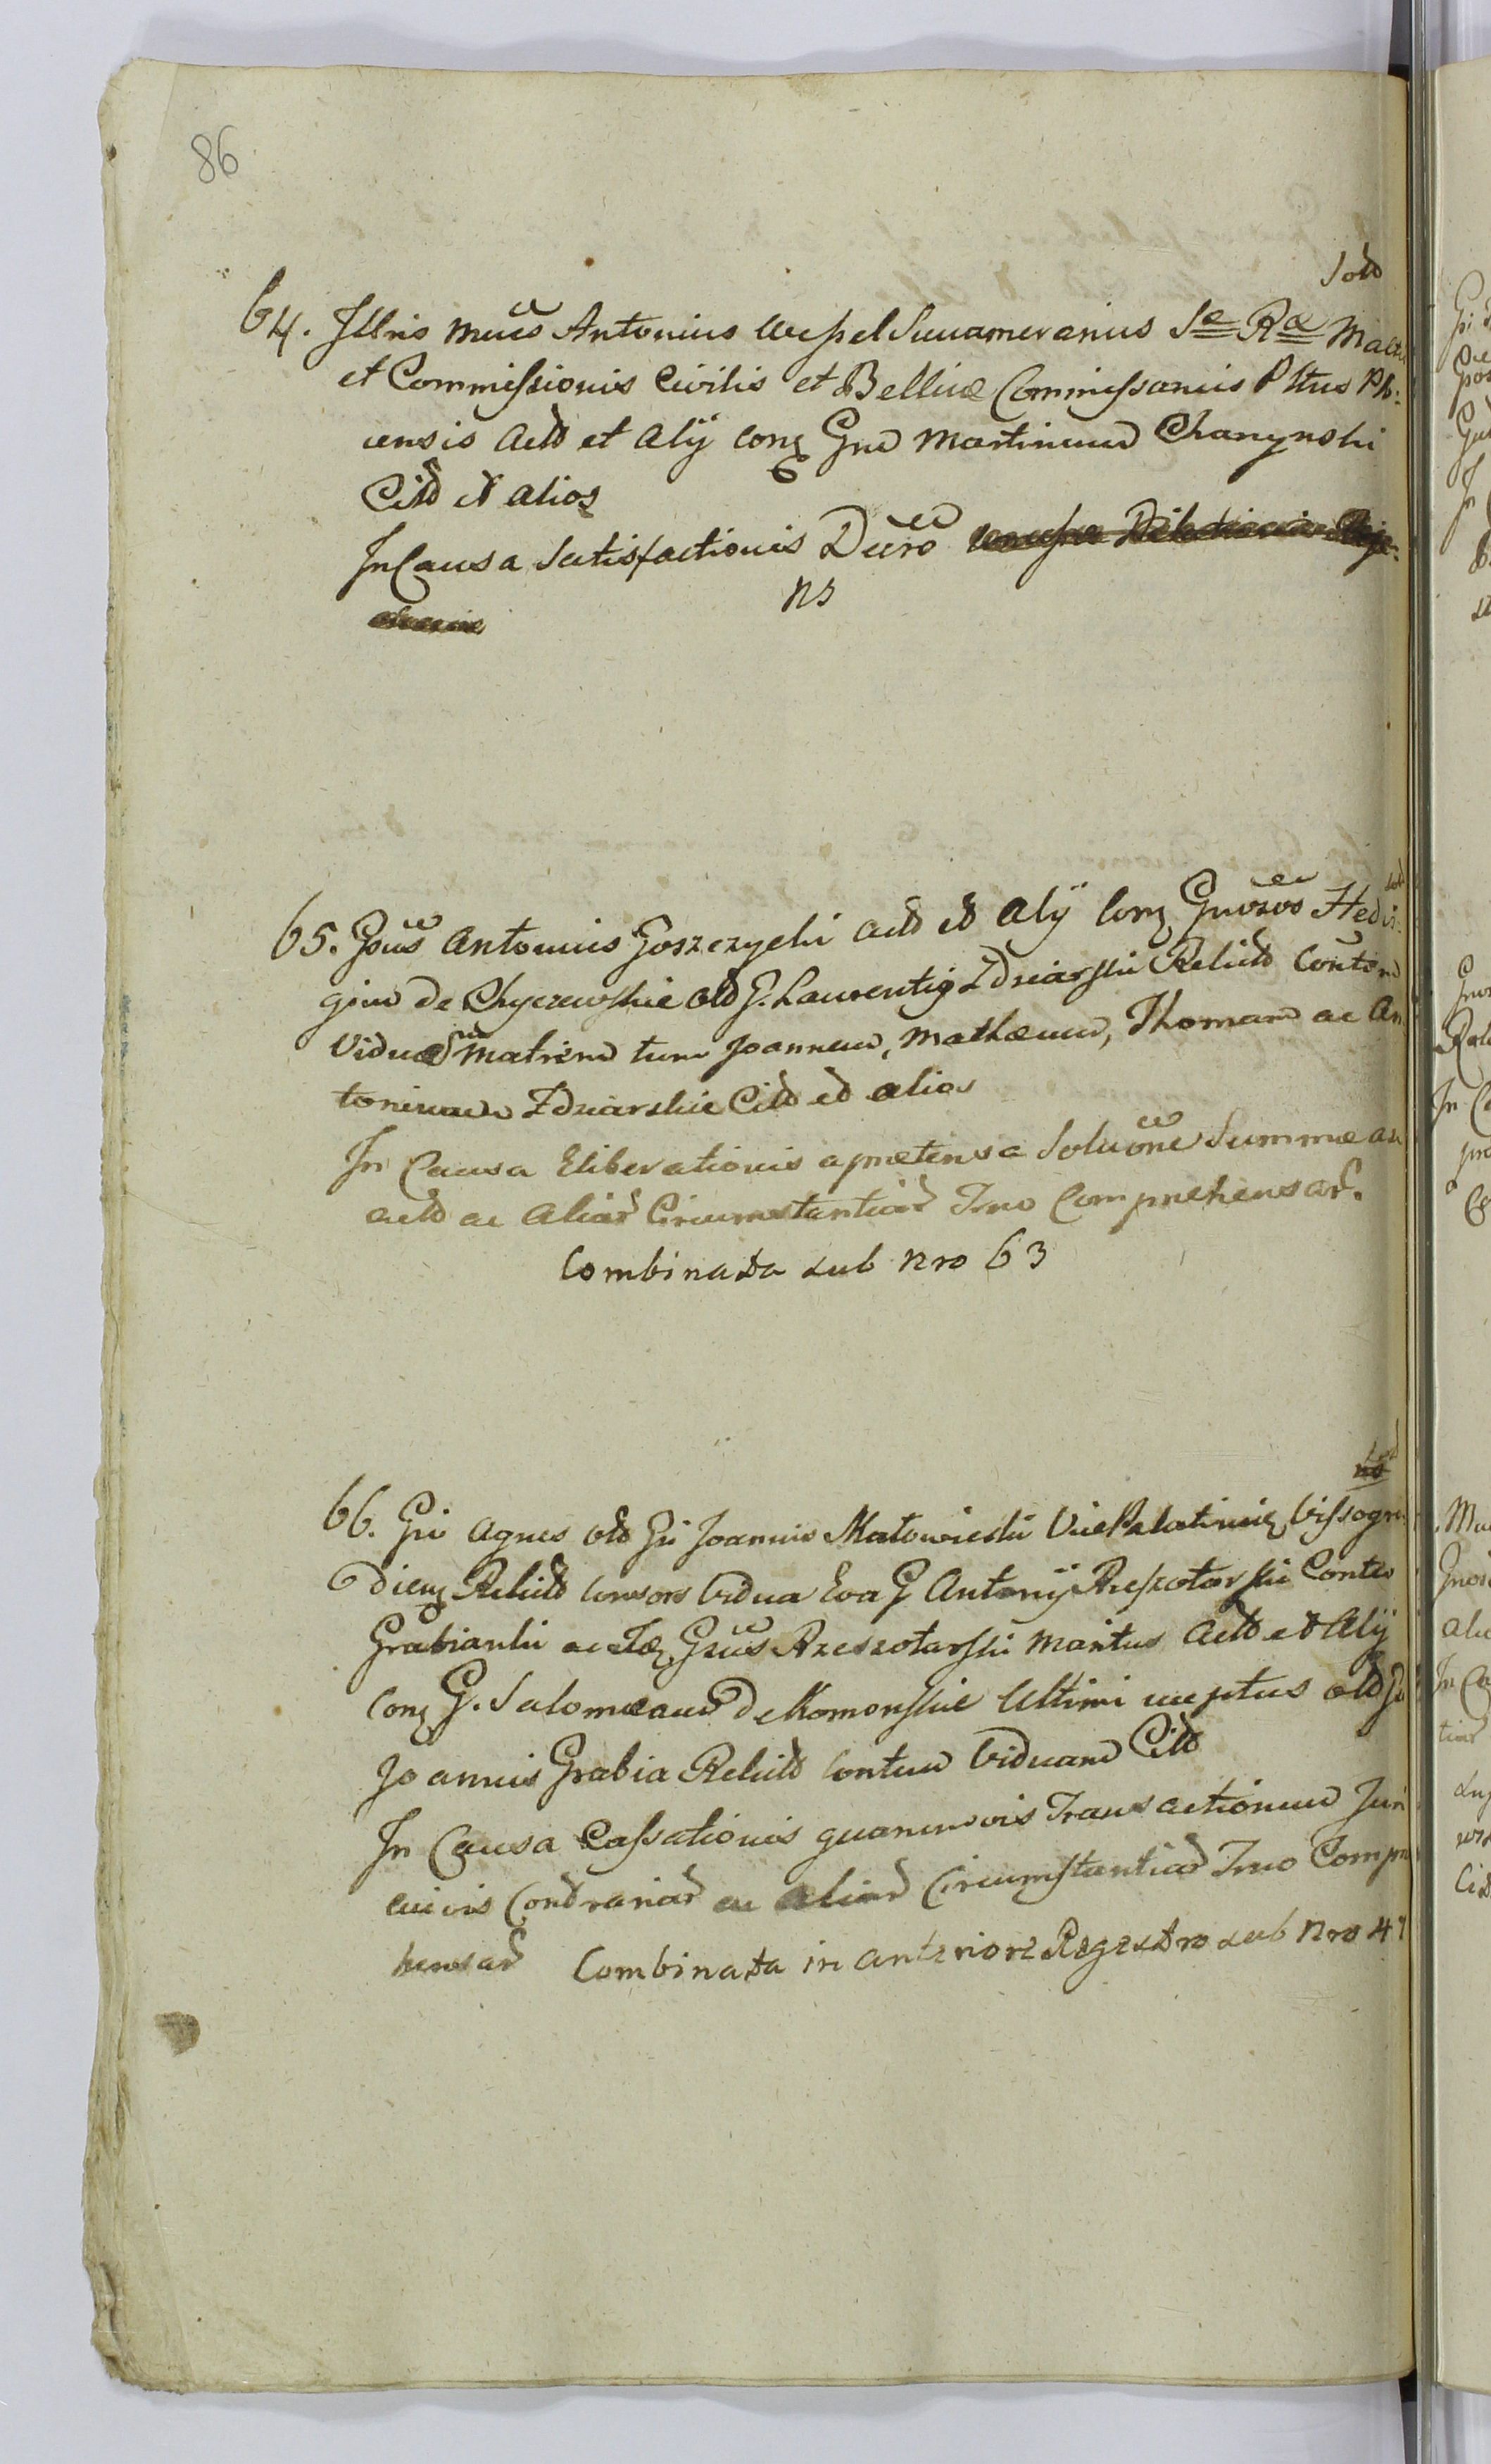 86
Sold
64. Jllris mucs Antonius Wessel Succamerarius Sæ Ræ
et Commissionis Civilis et Bellicæ Commissarius Pltus Pło:
censis Actd et Alij conq Gnd Martinum Charzynski
Citd et alios
In Causa Satisfactionis Decro
ns
65. Gsus Antonius Goszczycki Actd et Alij Conq Gnosos Hedvi:
gim de Chyczewskie old G. Laurentij Zdziarski Relictd Contem
Viduam Matrem tum Joannem, Mathæum, Thomam ac An
tonium Zdziarskie Citd et alios
In Causa Eliberationis a prætensa Solutione Summæ
actd ac Aliar Circumstantiar Trno Comprehensar.
Combinata sub Nro 63
66. Gsi Agnes old Gsi Joannis Makowiecki Vice Palatini Vissogro
diens Relictd Consors Vidua Eva G Antonij Rzeszotarski Contes
Grabianki ac Idq Gsus Rzeszotarski Maritus Actd et Alij
Conq G. Salomeam de Komorskie Ultimi nuptus old Gsi
Joannis Grabia Relictd Contem Viduam Citd
In Causa Cassationis quarumvis Transactionum Juri
cuivis Contrariar ac Aliar Circumstantiar Trno Compre
hensar Combinata in anteriore Regestro sub Nro 47